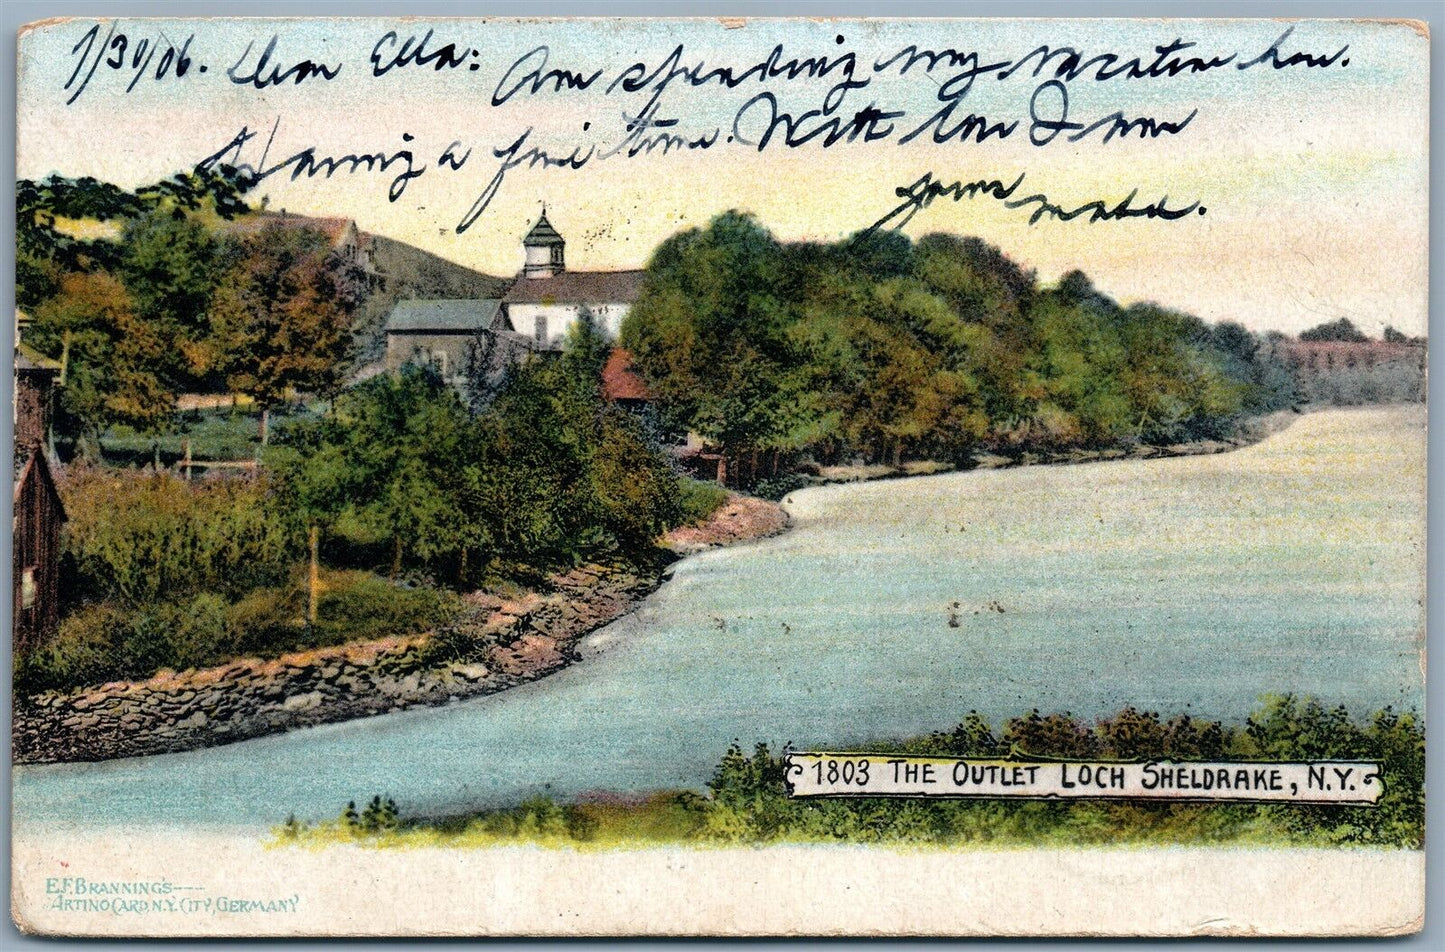 7/30/06. Dear Ella: Am spending my vacation here.
Having a fine time. With love I am
Yours
1803 THE OUTLET LOCH SHELDRAKE, N.Y.
E.F. BRANNING'S---
ARTINO CARD, N.Y. CITY, GERMANY